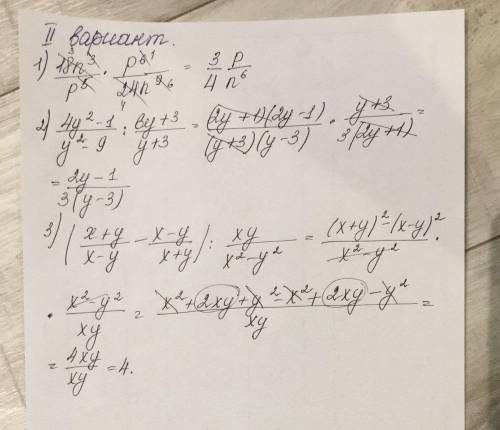 II вариант.
1) 18n³/p⁵ · p⁶ ¹/24n⁹ ₆ = 3/4 p/n⁶
2) 4y²-1/y²-9 : 6y+3/y+3 = (2y+1)(2y-1)/(y+3)(y-3) · y+3/3(2y+1) =
= 2y-1/3(y-3)
3) (x+y/x-y - x-y/x+y) : xy/x²-y² = (x+y)²-(x-y)²/x²-y² ·
· x²-y²/xy = x²+2xy+y²-x²+2xy-y²/xy =
= 4xy/xy = 4.